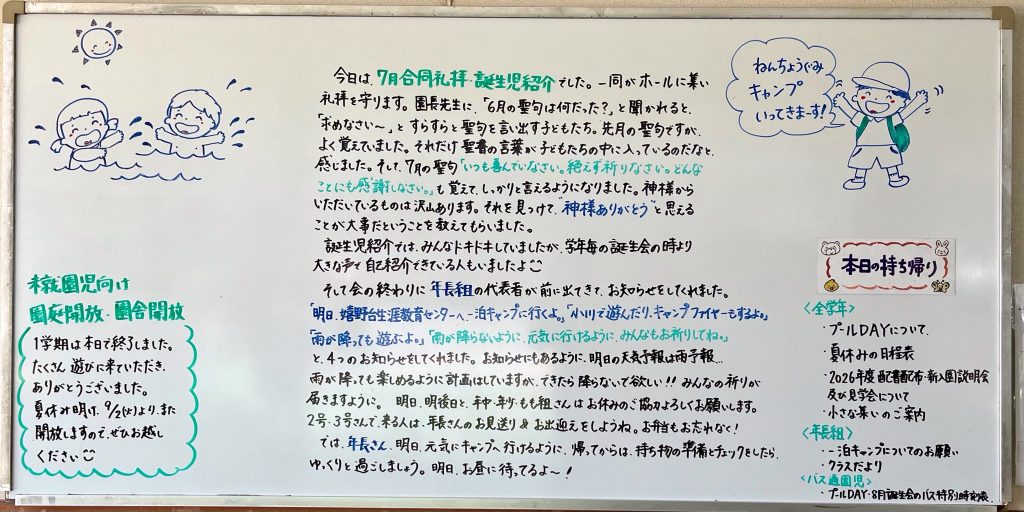 今日は、7月合同礼拝・誕生児紹介でした。一同がホールに集い
礼拝を守ります。園長先生に、「6月の聖句は何だった?」と聞かれると、
「求めなさい〜」とすらすらと聖句を言い出す子どもたち。先月の聖句ですが、
よく覚えていました。それだけ聖書の言葉が子どもたちの中に入っているのだなと、
感じました。そして、7月の聖句「いつも喜んでいなさい。絶えず祈りなさい。どんな
ことにも感謝しなさい。」も覚えて、しっかりと言えるようになりました。神様から
いただいているものは沢山あります。それを見つけて、"神様ありがとう"と思える
ことが大事だということを教えてもらいました。
誕生児紹介では、みんなドキドキしていましたが、学年毎の誕生会の時より
大きな声で自己紹介できている人もいましたよ
そして会の終わりに年長組の代表者が前に出てきて、お知らせをしてくれました。
「明日、嬉野台生涯教育センターへ一泊キャンプに行くよ。」「小川で遊んだり、キャンプファイヤーもするよ。」
「雨が降っても遊ぶよ。」「雨が降らないように、元気に行けるように、みんなもお祈りしてね。」
と、4つのお知らせをしてくれました。お知らせにもあるように、明日の天気予報は雨予報…
雨が降っても楽しめるように計画はしていますが、できたら降らないで欲しい!!みんなの祈りが
届きますように。明日、明後日と、年中・年少・もも組さんはお休みのご協力よろしくお願いします。
2号・3号さんで、来る人は、年長さんのお見送り&お出迎えをしようね。お弁当もお忘れなく!
では、年長さん、明日、元気にキャンプへ行けるように、帰ってからは、持ち物の準備とチェックをしたら、
ゆっくりと過ごしましょう。明日、お昼に待ってるよ〜!
ねんちょうぐみ
キャンプ
いってきまーす!
未就園児向け
園庭開放・園舎開放
1学期は本日で終了しました。
たくさん遊びに来ていただき、
ありがとうございました。
夏休み明け、9/2(火)より、また
開放しますので、ぜひお越し
ください
本日の持ち帰り
<全学年>
・プールDAYについて、
・夏休みの日程表
・2026年度 願書配布・新入園説明会
及び見学会について
・小さな集いのご案内
<年長組>
・一泊キャンプについてのお願い
・クラスだより
<バス通園児>
・プールDAY・8月誕生会のバス特別時刻表